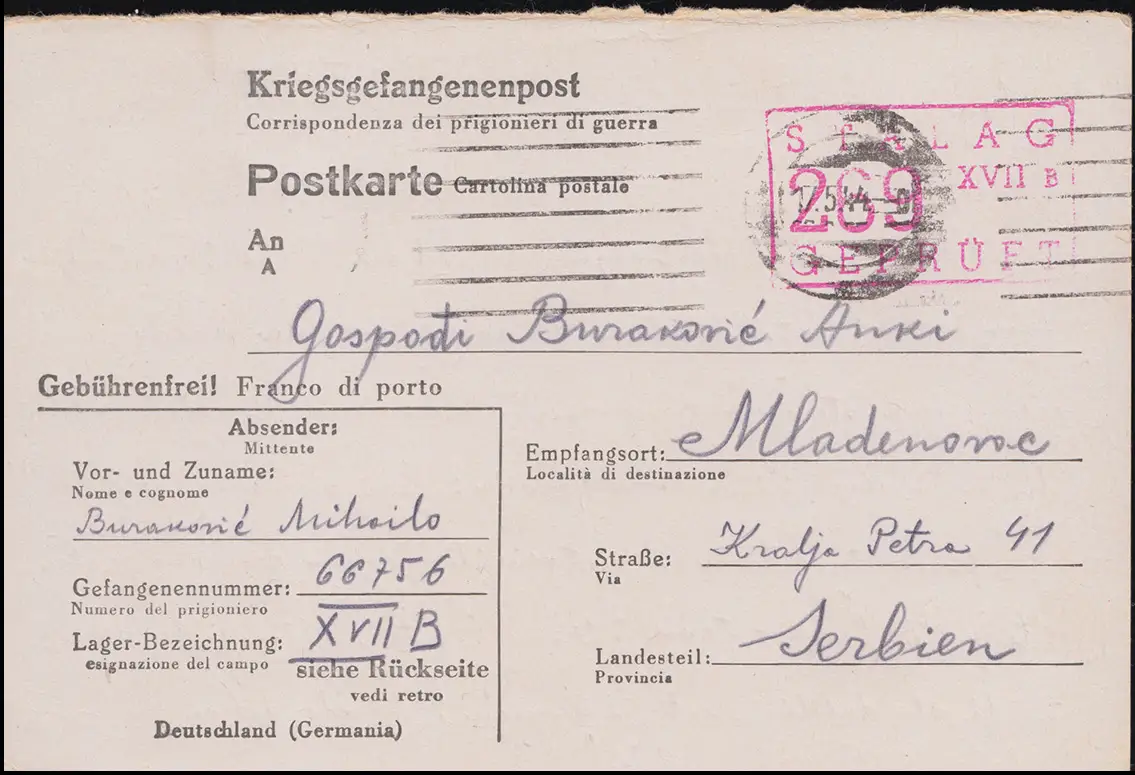 Kriegsgefangenenpost
Corrispondenza dei prigionieri di guerra
Postkarte Cartolina postale
STALAG
XVII B
269
GEPRÜFT
.5.44
An
A
Gospođi Buraković Anki
Gebührenfrei! Franco di porto
Absender:
Mittente
Vor- und Zuname:
Nome e cognome
Buraković Mihailo
Gefangenennummer: 66756
Numero del prigioniero
Lager-Bezeichnung: XVII B
esignazione del campo
siehe Rückseite
vedi retro
Deutschland (Germania)
Empfangsort: Mladenovac
Località di destinazione
Straße: Kralja Petra 41
Via
Landesteil: Serbien
Provincia